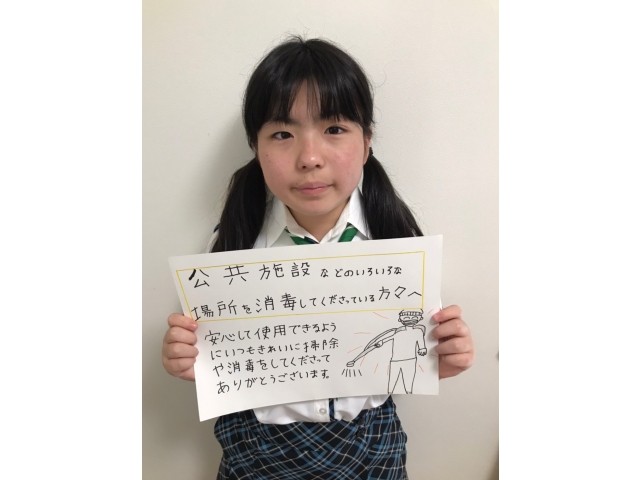 公共施設などのいろいろな
場所を消毒してくださっている方々へ
安心して使用できるよう
にいつもきれいに掃除
や消毒をしてくださって
ありがとうございます。